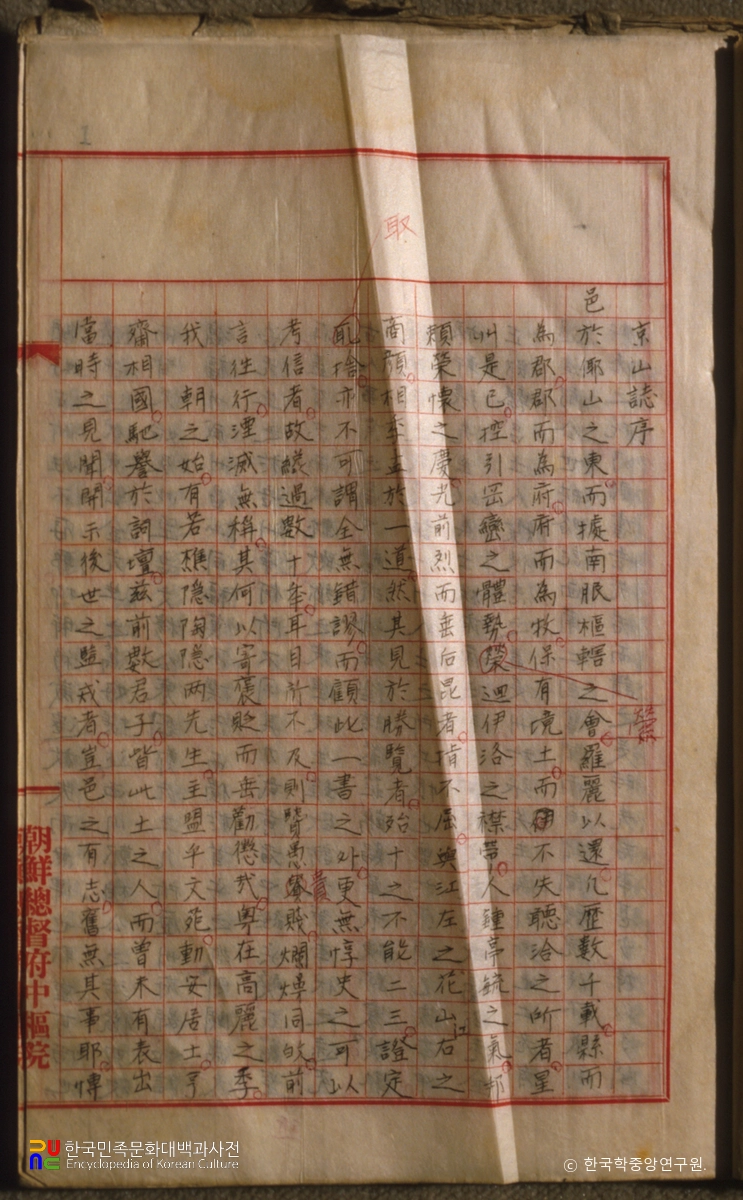 京山誌序
邑於倻山之東而據南服樞轄之會羅麗以還凡歷數千載縣而
為郡郡而為府府而為牧保有境土而不失聽治之所者星
州是已控引岡巒之體勢縈迴伊洛之襟帶人鍾亭毓之氣
賴榮懷之慶光前烈而垂后昆者指不屈與江左之花山江右之
商顏相季孟於一道然其見於勝覽者殆十之不能二三證定
取捨亦不可謂全無錯謬而顧此一書之外更無惇史之可以
考信者故纔過數十年耳目所不及則賢愚貴賤爛熳同然前
言往行湮滅無稱其何以寄褒貶而垂勸懲哉粤在高麗之季
我 朝之始有若樵隱陶隱兩先生主盟乎文苑動安居士
齋相國馳譽於詞壇茲前數君子皆此土之人而曾未有表出
當時之見聞開示後世之監戒者豈邑之有志舊無其事耶
取
縈
貴
1
朝鮮總督府中樞院
한국민족문화대백과사전
Encyclopedia of Korean Culture
ⓒ 한국학중앙연구원.